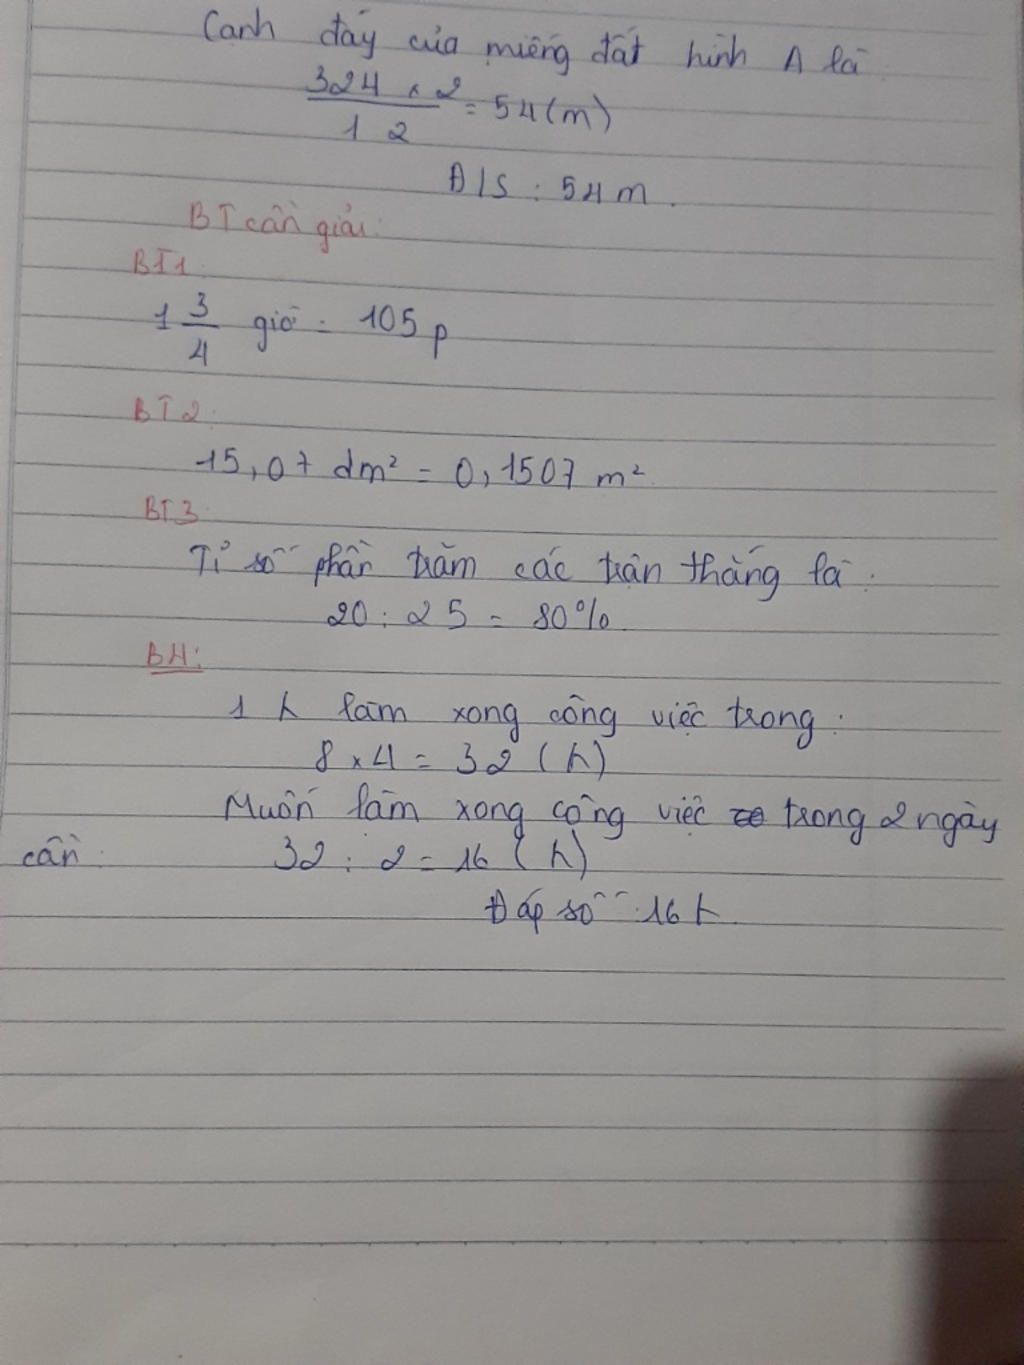 Canh đáy của miếng đất hình A là
324 x 2
= 54(m)
12
Đ/S : 54 m.
BT cần giải:
BT1
1 3/4 giờ = 105 p
BT2:
15,07 dm² = 0,1507 m²
BT3
Tỉ số phần trăm các trận thắng là:
20 : 25 = 80%
B4:
1 h làm xong công việc trong:
8 x 4 = 32 (h)
Muốn làm xong công việc trong 2 ngày
cần: 32 : 2 = 16 (h)
Đáp số : 16 h